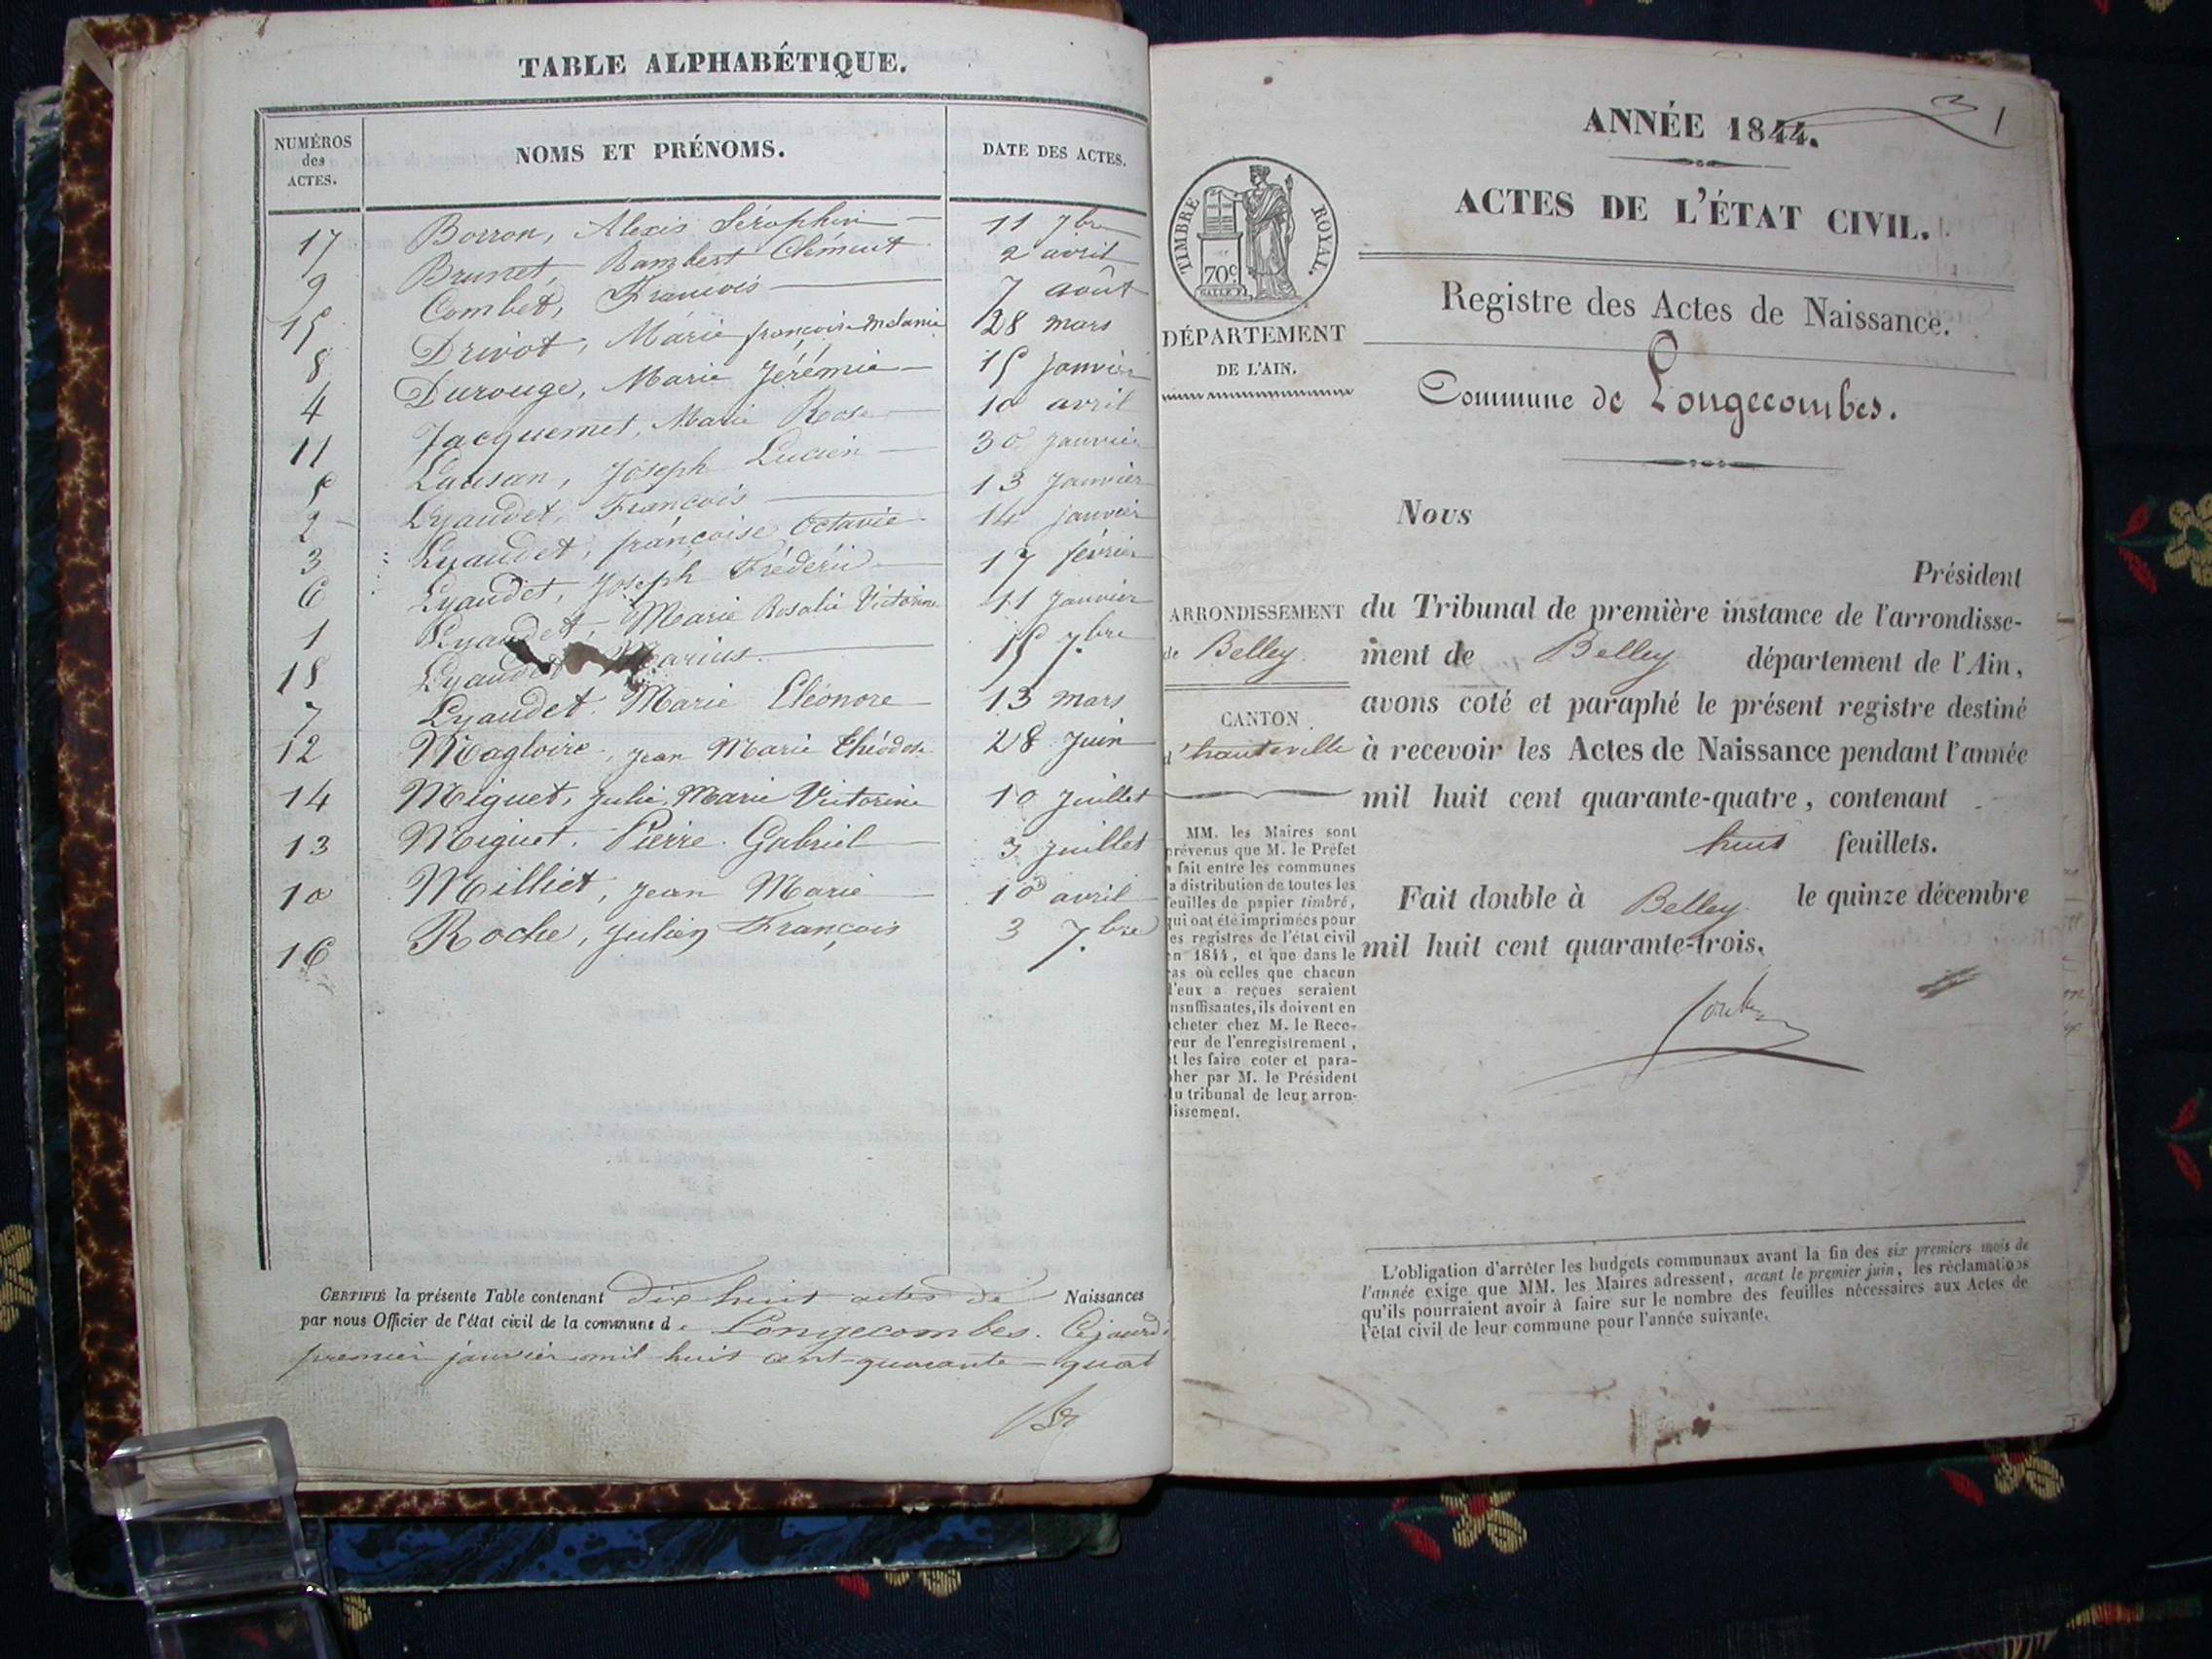 TABLE ALPHABÉTIQUE.
NUMÉROS des ACTES. NOMS ET PRÉNOMS. DATE DES ACTES.
17 Borron, Alexis Séraphin 11 7bre
9 Brunet, Rambert Clément 2 avril
15 Combet, François 7 août
8 Drivot, Marie françoise Mélanie 28 mars
4 Durouge, Marie Jérémie 15 janvier
11 Jacquemet, Marie Rose 10 avril
5 Lausan, Joseph Lucien 30 janvier
2 Lyaudet, François 13 janvier
3 Lyaudet, françoise Octavie 14 janvier
6 Lyaudet, Joseph Frédéric 17 février
1 Lyaudet, Marie Rosalie Victorine 11 janvier
18 Lyaudet Marius 15 7.bre
7 Lyaudet Marie Eléonore 13 mars
12 Magloire, Jean Marie Théodose 28 juin
14 Miguet, Julie Marie Victorine 10 juillet
13 Miguet, Pierre Gabriel 3 juillet
10 Milliet, Jean Marie 10 avril
16 Roche, Julien François 3 7.bre
CERTIFIÉ la présente Table contenant dix huit actes de Naissances
par nous Officier de l'état civil de la commune de Longecombes. Cejourd
premier janvier mil huit cent quarante-quat
3
1
ANNÉE 1844.
ACTES DE L'ÉTAT CIVIL.
TIMBRE ROYAL.
70c
Registre des Actes de Naissance.
DÉPARTEMENT
DE L'AIN.
Commune de Longecombes.
Nous
Président
ARRONDISSEMENT
de Belley
CANTON
d'hauteville
du Tribunal de première instance de l'arrondisse-
ment de Belley département de l'Ain,
avons coté et paraphé le présent registre destiné
à recevoir les Actes de Naissance pendant l'année
mil huit cent quarante-quatre, contenant
huit feuillets.
Fait double à Belley le quinze décembre
mil huit cent quarante-trois.
MM. les Maires sont
révenus que M. le Préfet
fait entre les communes
a distribution de toutes les
euilles de papier timbré,
qui ont été imprimées pour
es registres de l'état civil
n 1844, et que dans le
as où celles que chacun
'eux a reçues seraient
nsuffisantes, ils doivent en
cheter chez M. le Rece-
eur de l'enregistrement,
t les faire coter et para-
her par M. le Président
u tribunal de leur arron-
issement.
L'obligation d'arrêter les budgets communaux avant la fin des six premiers mois de
l'année exige que MM. les Maires adressent, avant le premier juin, les réclamations
qu'ils pourraient avoir à faire sur le nombre des feuilles nécessaires aux Actes de
l'état civil de leur commune pour l'année suivante.